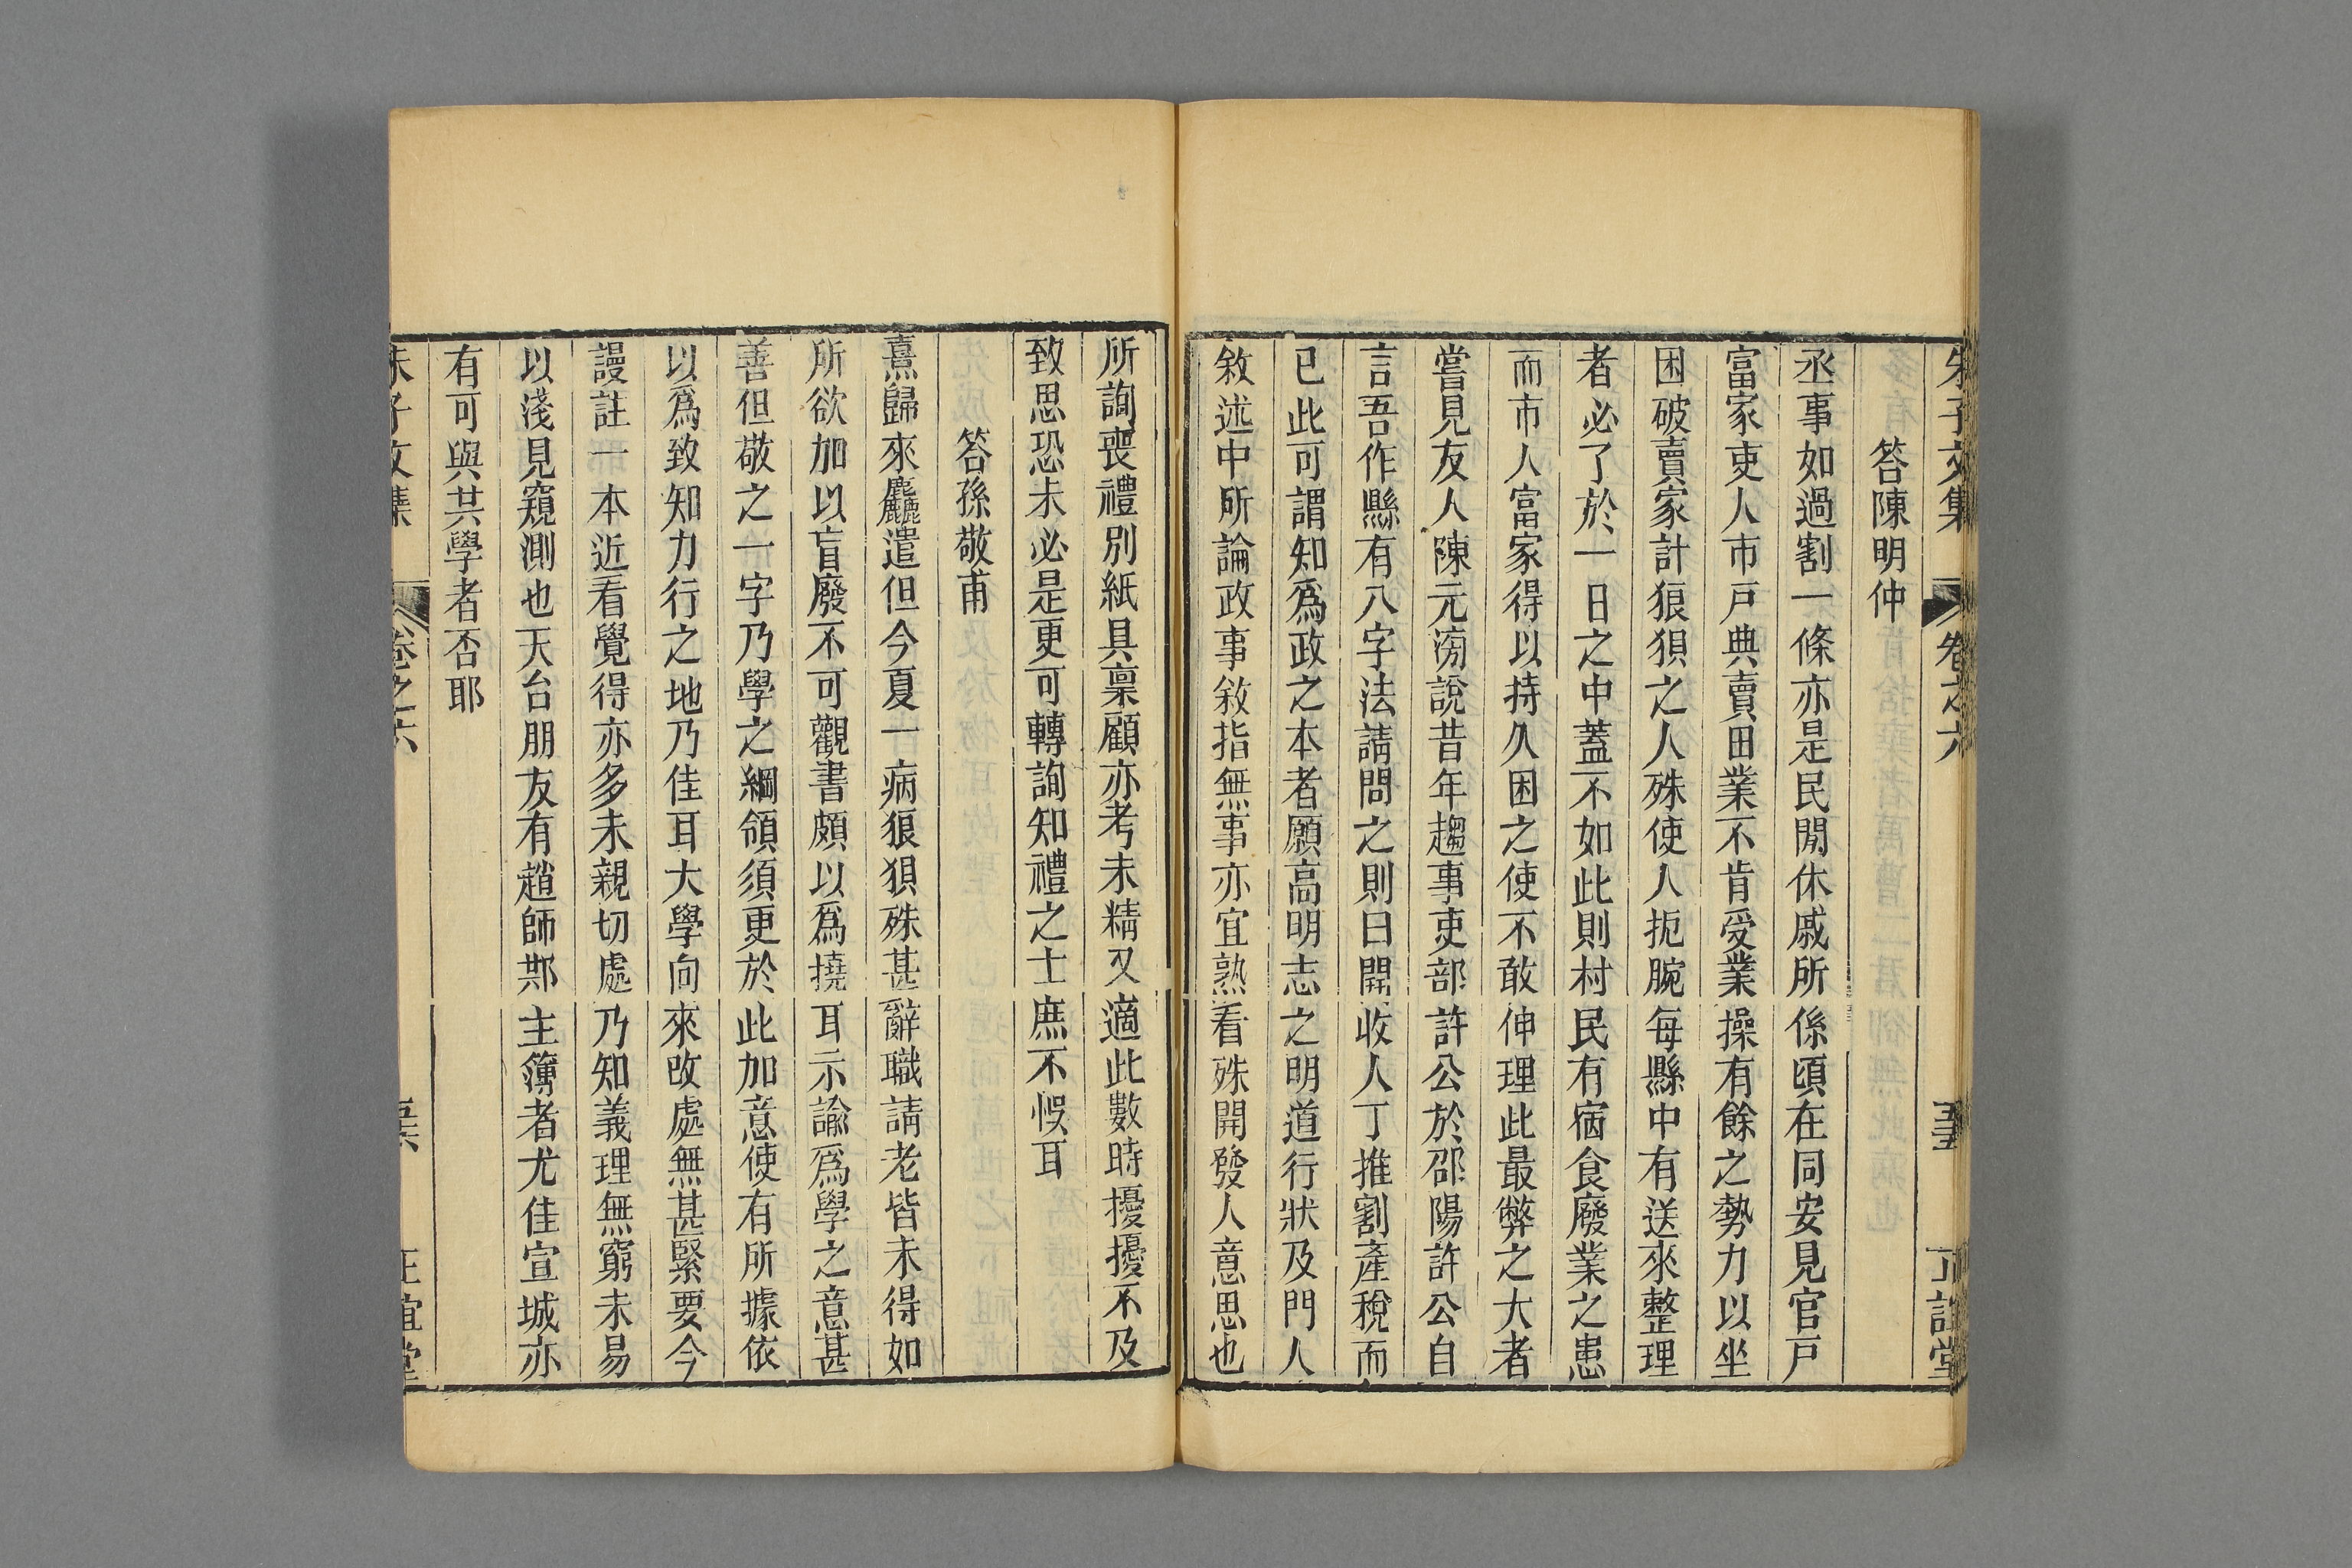 朱子文集 卷之六 五 正誼堂
答陳明仲
丞事如過割一條亦是民閒休戚所係頃在同安見官戸
富家吏人市戸典賣田業不肯受業操有餘之勢力以坐
困破賣家計狼狽之人殊使人扼腕每縣中有送來整理
者必了於一日之中蓋不如此則村民有宿食廢業之患
而市人富家得以持久困之使不敢伸理此最弊之大者
嘗見友人陳元滂說昔年趨事吏部許公於邵陽許公自
言吾作縣有八字法請問之則曰開收人丁推割產稅而
已此可謂知爲政之本者願高明志之明道行狀及門人
敘述中所論政事敘指無事亦宜熟看殊開發人意思也
所詢喪禮別紙具稟顧亦考未精又適此數時擾擾不及
致思恐未必是更可轉詢知禮之士庶不悞耳
答孫敬甫
熹歸來麤遣但今夏一病狼狽殊甚辭職請老皆未得如
所欲加以盲廢不可觀書頗以爲撓耳示諭爲學之意甚
善但敬之一字乃學之綱領須更於此加意使有所據依
以爲致知力行之地乃佳耳大學向來改處無甚緊要今
謾註一本近看覺得亦多未親切處乃知義理無窮未易
以淺見窺測也天台朋友有趙師䢼主簿者尤佳宣城亦
有可與共學者否耶
朱子文集 卷之六 正誼堂